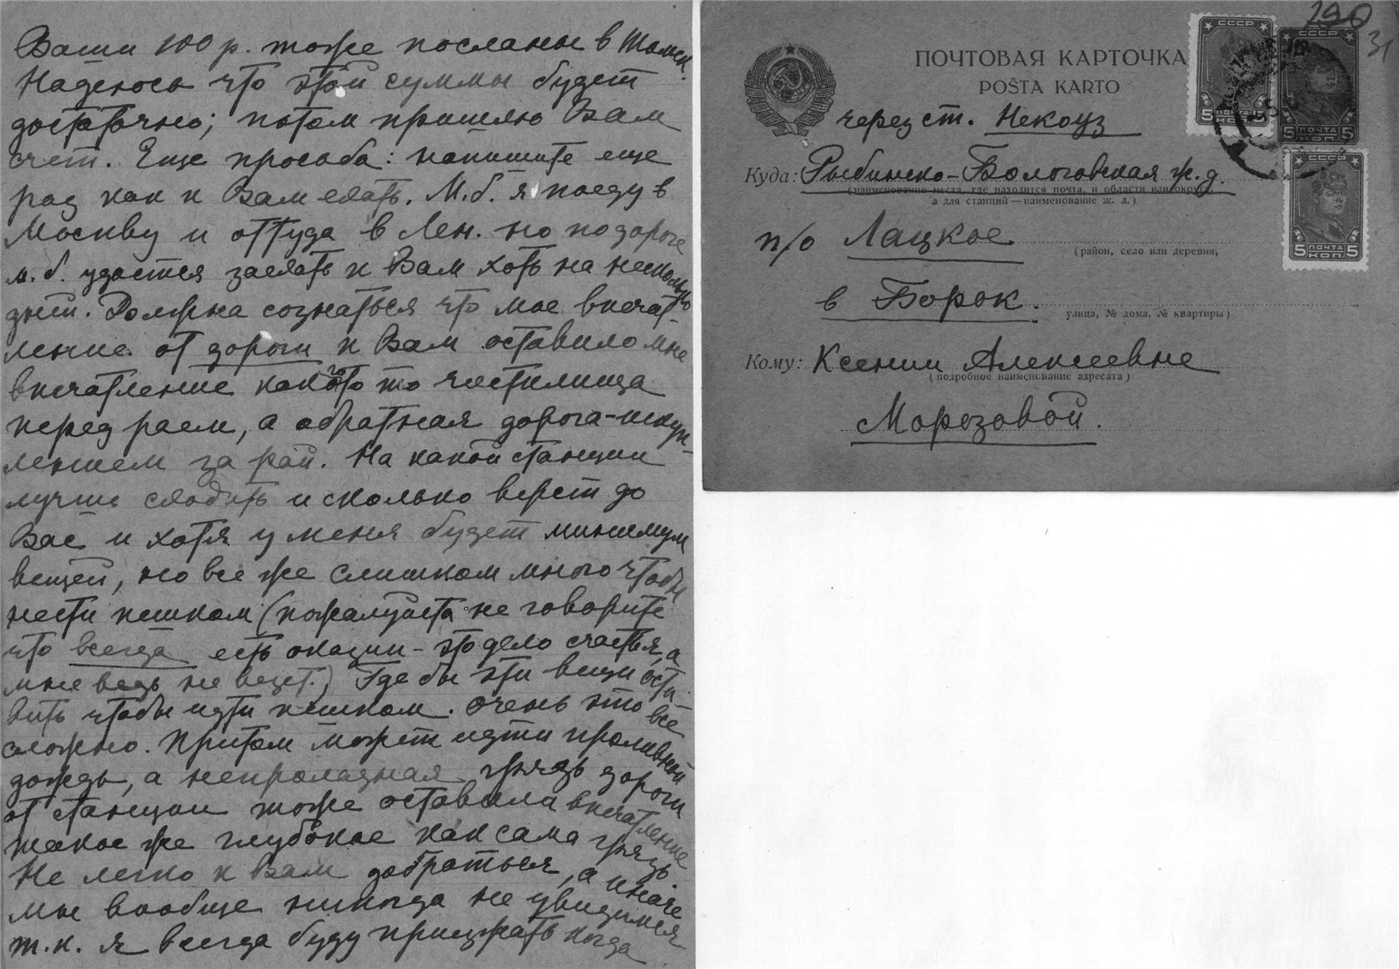 Ваши 100 р. тоже посланы в
Надеюсь что этой суммы будет
достаточно; потом пришлю Вам
счет. Еще просьба: напишите еще
раз как к Вам ехать. М.б. я поеду в
Москву и оттуда в Лен. но по дороге
м.б. удастся заехать к Вам хоть на несколько
дней. Должна сознаться что мое впечат-
ление от дороги к Вам оставило мне
впечатление какого то чистилища
перед раем, а обратная дорога - искуп-
лением за рай. На какой станции
лучше слезть и сколько верст до
Вас и хотя у меня будет минимум
вещей, но все же слишком много чтобы
нести пешком (пожалуйста не говорите
что всегда есть оказии - это дело счастья, а
мне ведь не везет.) Где бы эти вещи оста-
вить чтобы идти пешком. Очень это все
сложно. Притом может идти проливной
дождь, а непролазная грязь дороги
от станции тоже оставила впечатление
такое же глубокое как сама грязь
Не легко к Вам добраться, а иначе
мы вообще никогда не увидимся
т.к. я всегда буду приезжать когда
290
31
СССР
СССР
ПОЧТОВАЯ КАРТОЧКА
POŜTA KARTO
5 ПОЧТА КОП. 5
5 ПОЧТА КОП. 5
через ст. Некоуз
СССР
Куда: Рыбинско-Бологовская ж.д.
(наименование места, где находится почта, и области или края,
а для станций — наименование ж. д.)
п/о Лацкое
(район, село или деревня,
5 ПОЧТА КОП. 5
в Борок.
улица, № дома, № квартиры)
Кому: Ксении Алексеевне
(подробное наименование адресата)
Морозовой.